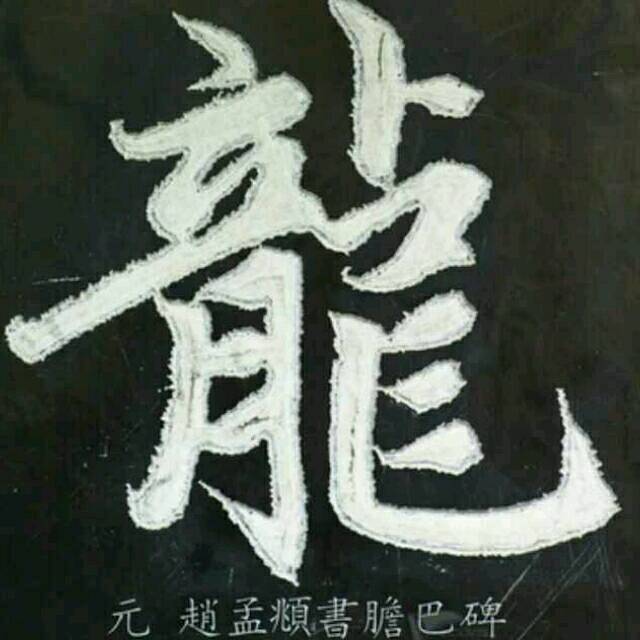 龍
元 趙孟頫書膽巴碑